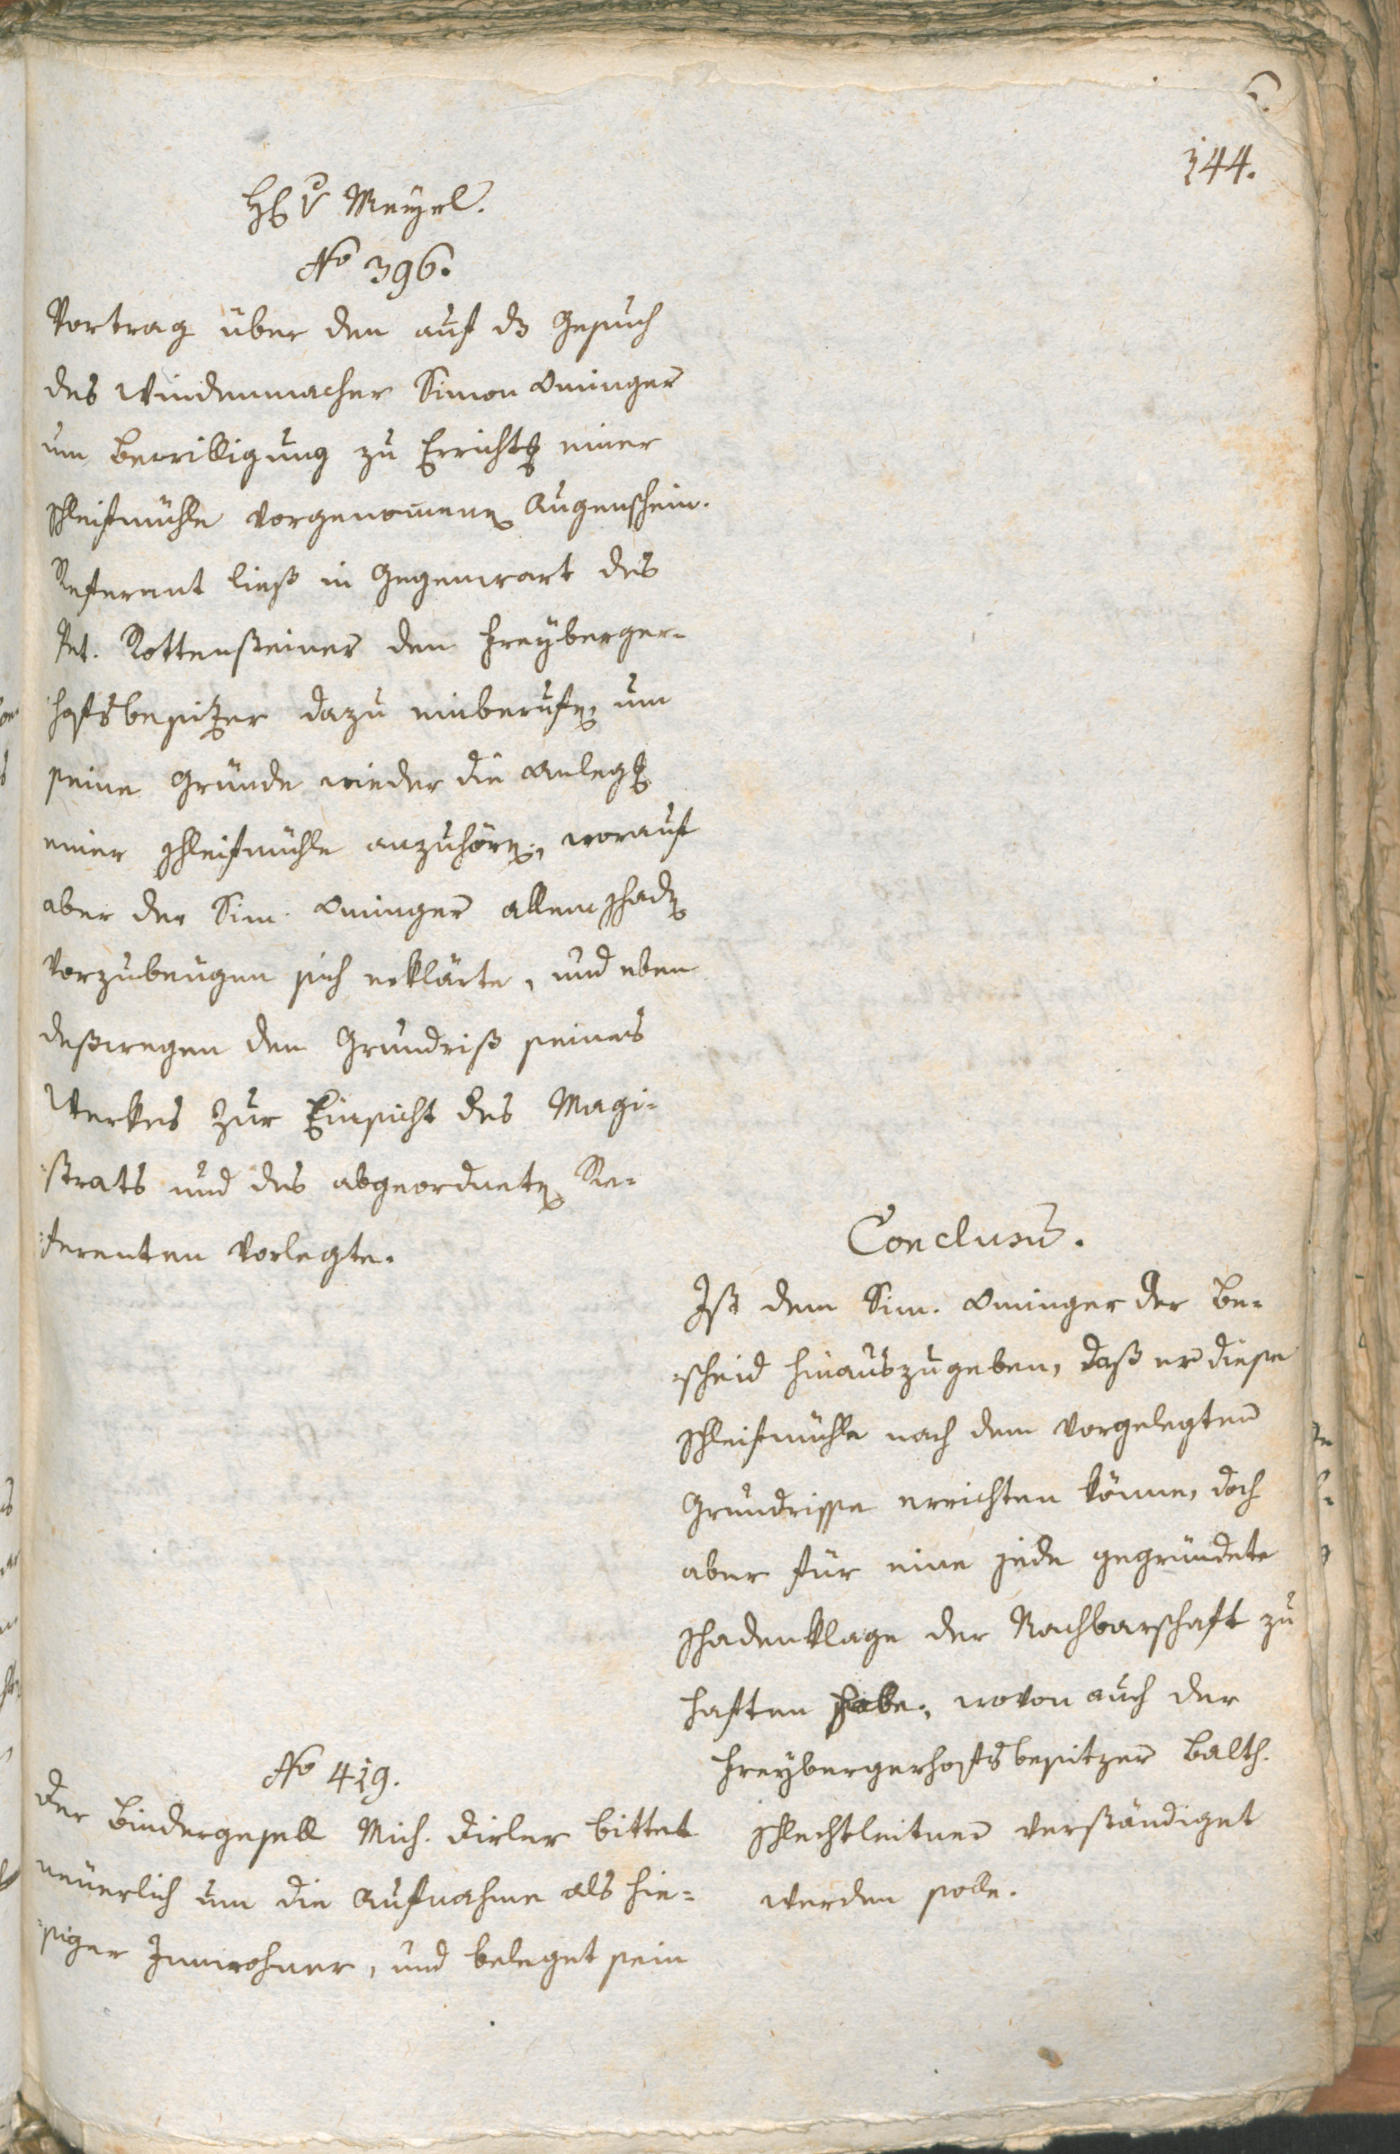 144.
H. v Mayrl.
No 396.
Vortrag über den auf dz Gesuch
des Windenmacher Simon Aninger
um Bewilligung zu Erricht[un]g einer
Schleifmühle vorgenomenen Augenschein.
Referent ließ in Gegenwart des
Pet. Rottensteiner den Freyberger-
hofsbesitzer dazu einberufen, um
seine Gründe wieder die Anlegg
einer Schleifmühle anzuhören, worauf
aber der Sim. Aninger allem Schaden
vorzubeugen sich erklärte, und eben
deßwegen den Grundriß seines
Werkes zur Einsicht des Magi-
strats und des abgeordneten Re-
ferenten vorlegte.
Conclusum.
Ist dem Sim. Aninger der Be-
scheid hinauszugeben, daß er diese
Schleifmühle nach dem vorgelegten
Grundrisse errichten könne, doch
aber für eine jede gegründete
Schadenklage der Nachbarschaft zu
haften habe, wovon auch der
Freybergerhofsbesitzer Balth.
Schlechtleitner verständiget
werden solle.
No 419.
Der Bindergesell Mich. Dirler bittet
neuerlich um die Aufnahme als hie-
siger Innwohner, und beleget sein